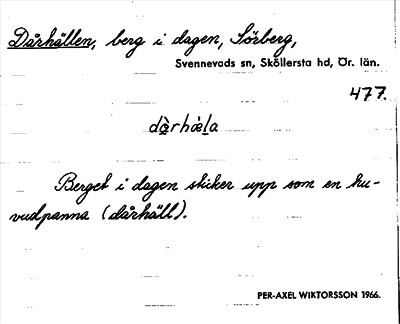 Dårhällen, berg i dagen, Sörberg,
Svennevads sn, Sköllersta hd, Ör. län.
477.
dàrhæla
Berget i dagen sticker upp som en hu-
vudpanna (dårhäll).
PER-AXEL WIKTORSSON 1966.